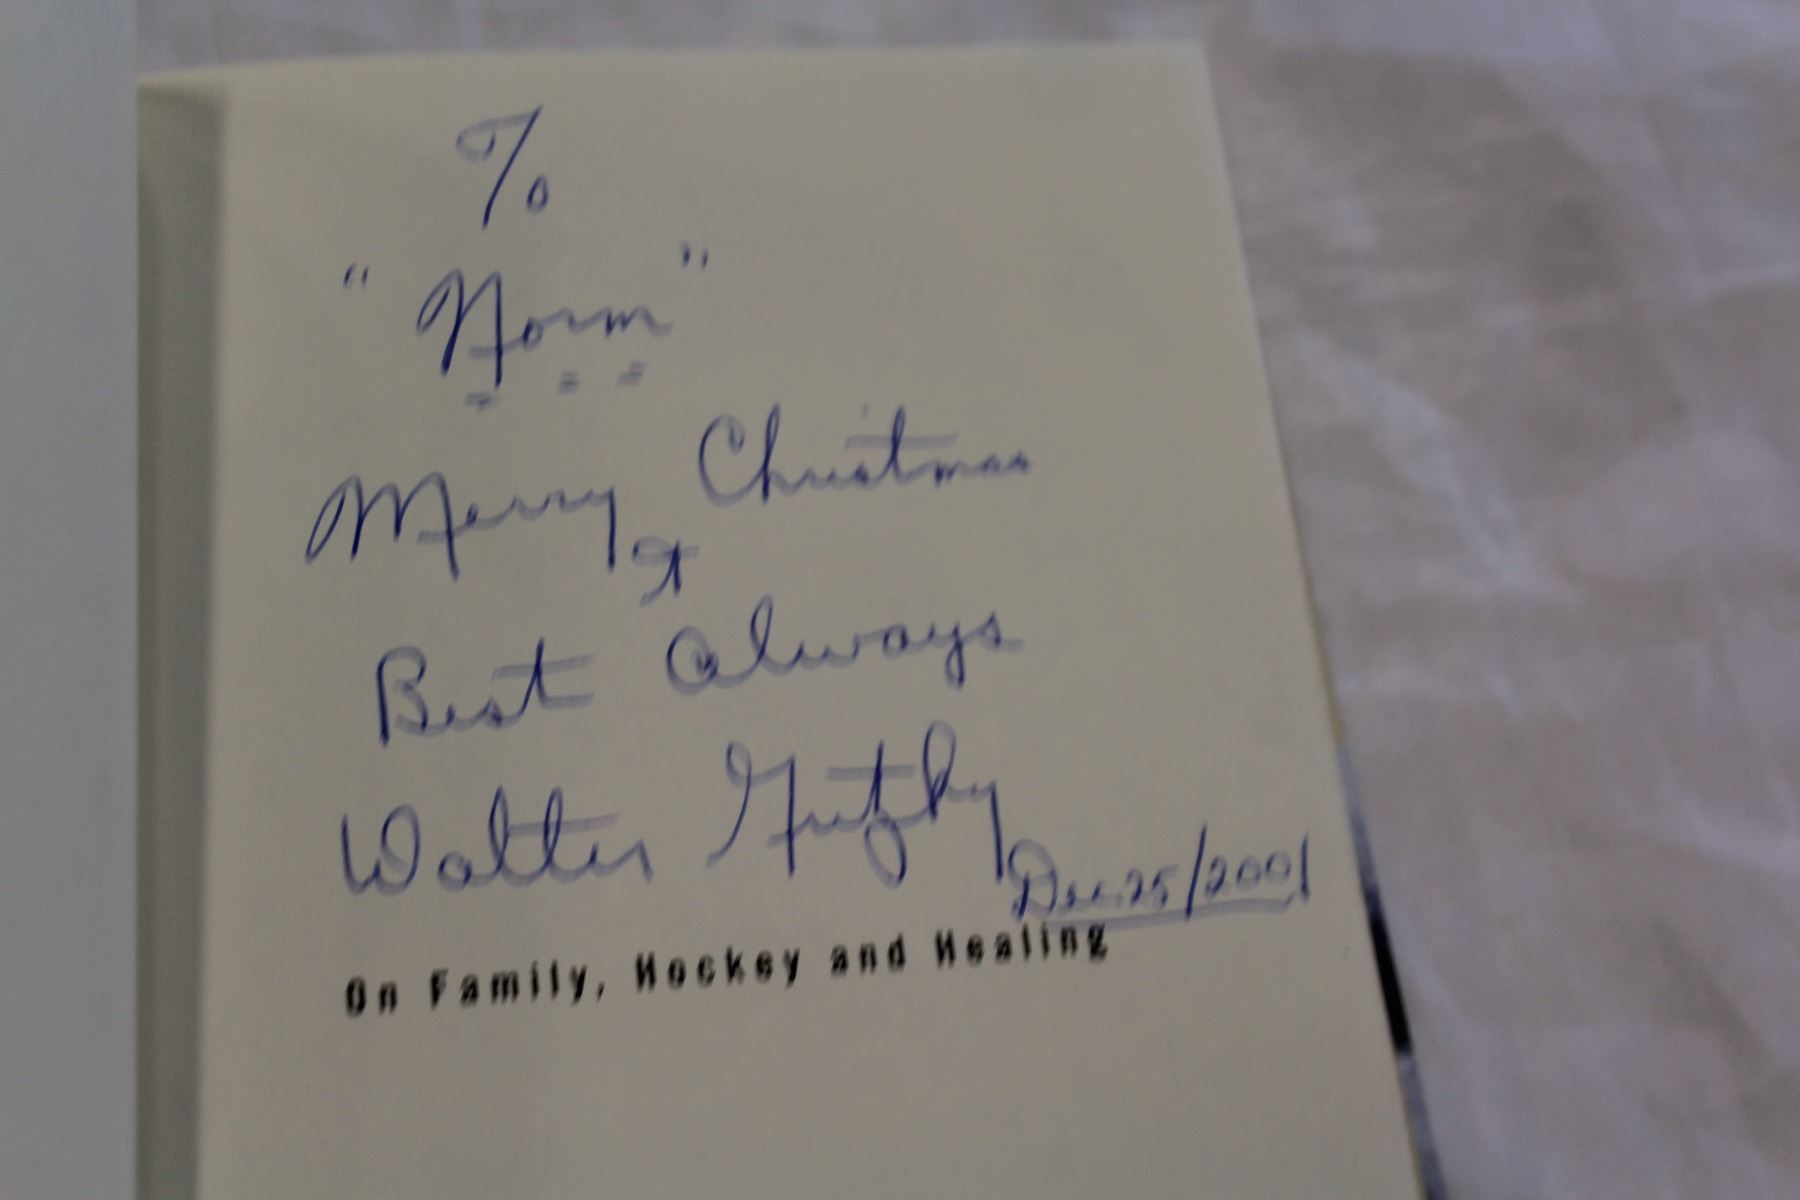 To
"Norm"
Merry Christmas
&
Best Always
Walter Gretzky
Dec.25/2001
On Family, Hockey and Healing